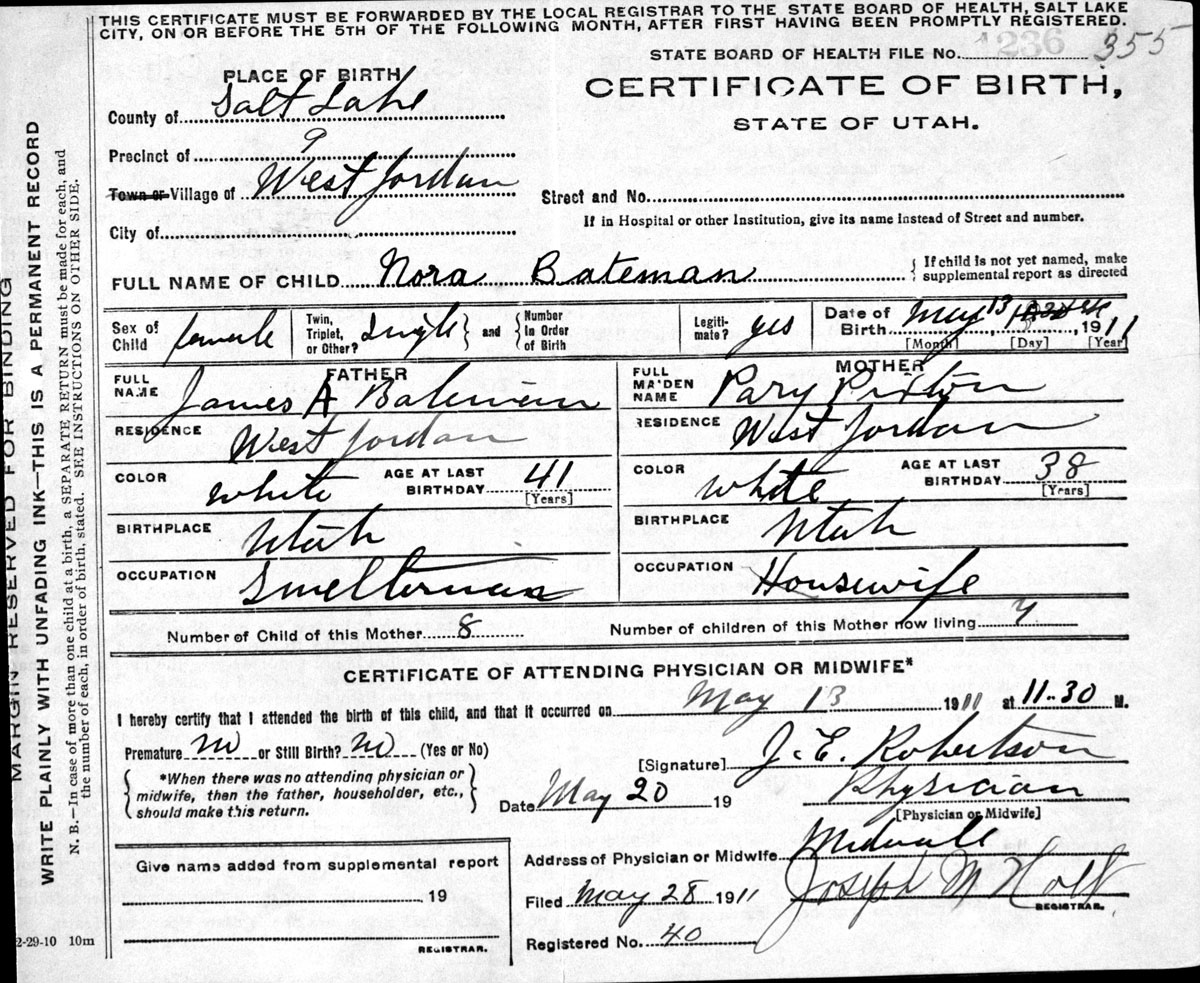 THIS CERTIFICATE MUST BE FORWARDED BY THE LOCAL REGISTRAR TO THE STATE BOARD OF HEALTH, SALT LAKE
CITY, ON OR BEFORE THE 5TH OF THE FOLLOWING MONTH, AFTER FIRST HAVING BEEN PROMPTLY REGISTERED.
STATE BOARD OF HEALTH FILE No. 1236 355
PLACE OF BIRTH
CERTIFICATE OF BIRTH,
STATE OF UTAH.
County of Salt Lake
Precinct of 9
Town or Village of West Jordan
Street and No.
If in Hospital or other Institution, give its name instead of Street and number.
City of
FULL NAME OF CHILD Nora Bateman
{ If child is not yet named, make
supplemental report as directed
Sex of Child female
Twin, Triplet, or Other? Single } and { Number in Order of Birth
Legiti-mate? yes
Date of Birth May 13, 1911
[Month] [Day] [Year]
FATHER
FULL NAME James A Bateman
RESIDENCE West Jordan
COLOR white AGE AT LAST BIRTHDAY 41 [Years]
BIRTHPLACE Utah
OCCUPATION Smelterman
MOTHER
FULL MAIDEN NAME Pary Pixton
RESIDENCE West Jordan
COLOR white AGE AT LAST BIRTHDAY 38 [Years]
BIRTHPLACE Utah
OCCUPATION Housewife
Number of Child of this Mother 8 Number of children of this Mother now living 7
CERTIFICATE OF ATTENDING PHYSICIAN OR MIDWIFE*
I hereby certify that I attended the birth of this child, and that it occurred on May 13 1911 at 11.30 M.
Premature no or Still Birth? no (Yes or No)
{ *When there was no attending physician or
midwife, then the father, householder, etc.,
should make this return. }
[Signature] J. E. Robertson
Physician
[Physician or Midwife]
Date May 20 19
Give name added from supplemental report
19
REGISTRAR.
Address of Physician or Midwife Midvale
Filed May 28 1911 Joseph M Holt
REGISTRAR.
Registered No. 40
2-29-10 10m
MARGIN RESERVED FOR BINDING
WRITE PLAINLY WITH UNFADING INK—THIS IS A PERMANENT RECORD
N. B.—In case of more than one child at a birth, a SEPARATE RETURN must be made for each, and
the number of each, in order of birth, stated. SEE INSTRUCTIONS ON OTHER SIDE.